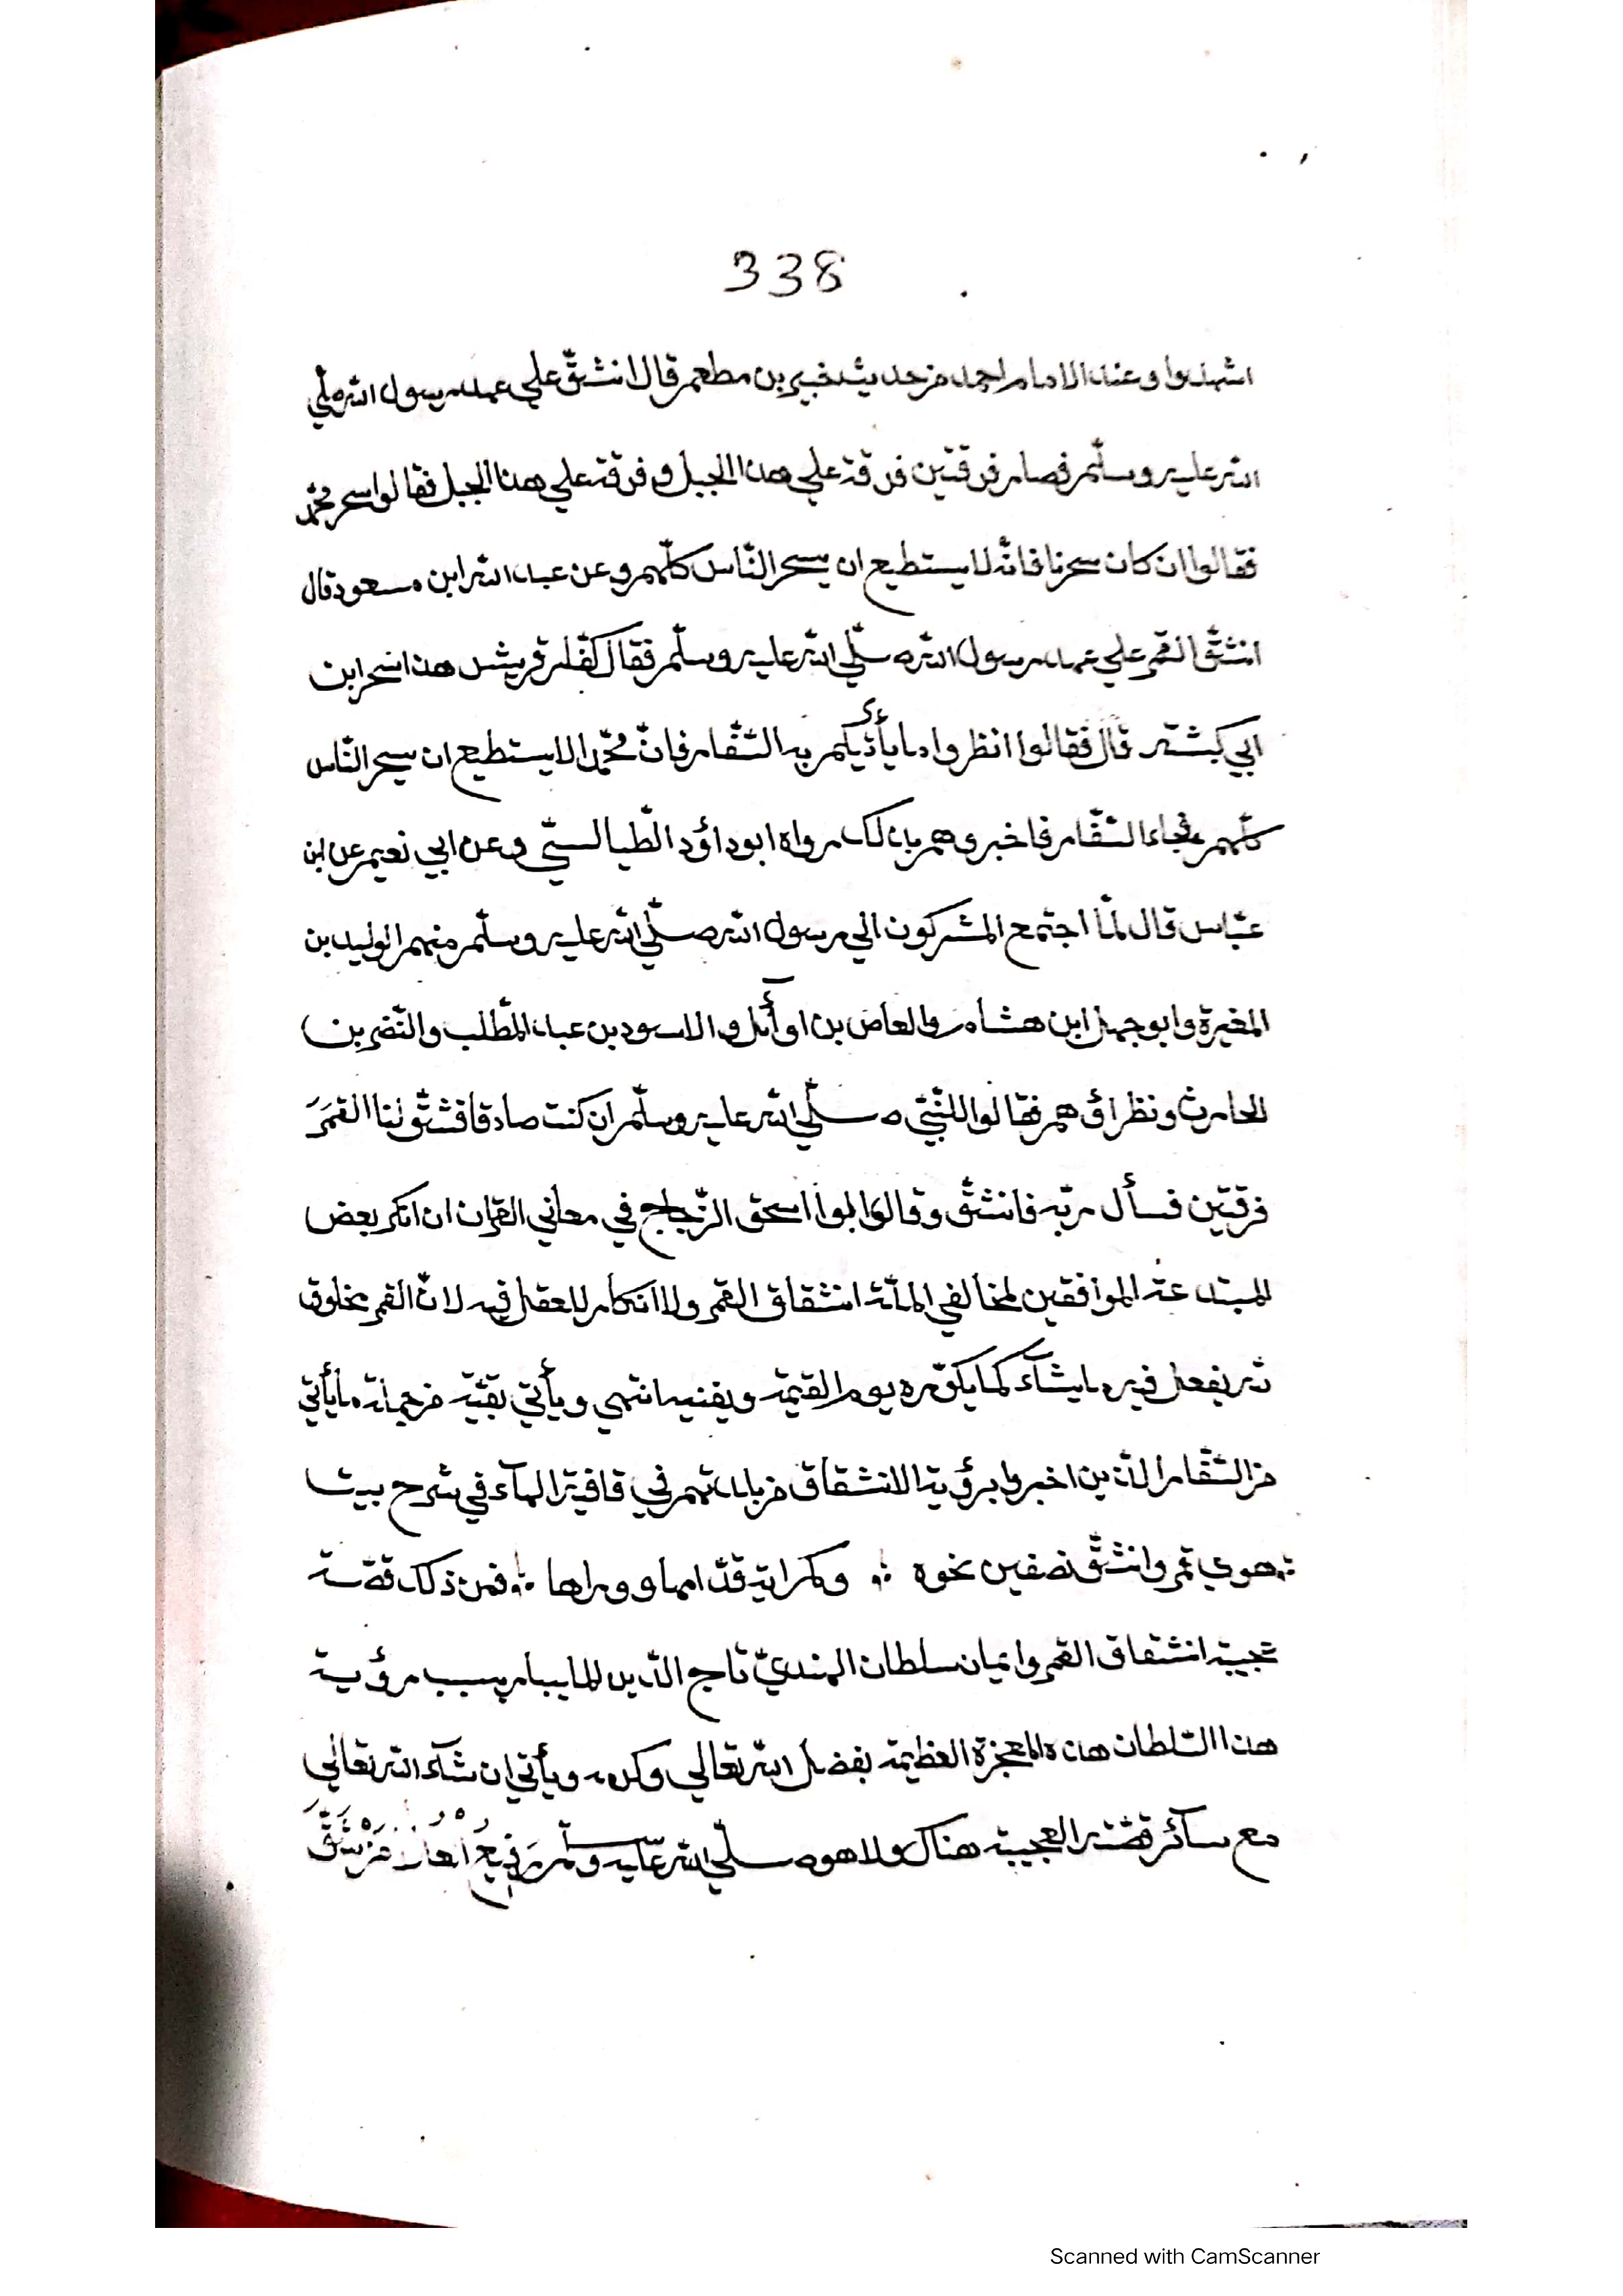 338
اشهدوا وعند الامام احمد من حديث خبير بن مطعم قال انشقّ علي عهد رسول الله صلّي
الله عليه وسلّم فصار فرقتين فرقة علي هذا الجبل و فرقة علي هذا الجبل فقالوا سحر محمّد
فقالوا ان كان سحرنا فانّه لا يستطيع ان يسحر النّاس كلّهم وعن عبد الله ابن مسعود قال
انشقّ القمر علي عهد رسول الله صلّي الله عليه وسلّم فقال كفّار قريش هذا سحر ابن
ابي كبشة قال فقالوا انظروا ما يأتيكم به السّفّار فانّ محمّدا لا يستطيع ان يسحر النّاس
كلّهم فجاء السّفّار فاخبروهم بذالك رواه ابو داؤد الطّيالسيّ وعن ابي نعيم عن ابن
عبّاس قال لمّا اجتمع المشركون الي رسول الله صلّي الله عليه وسلّم منهم الوليد بن
المغيرة وابو جهل ابن هشام والعاص بن اوآئل والاسود بن عبد المطّلب والنّضر بن
الحارث ونظراؤهم فقالوا للنّبيّ صلّي الله عليه وسلّم ان كنت صادقا فشقّ لنا القمَرَ
فرقتين فسأل ربّه فانشقّ وقال ابوا اسحق الزّجاج في معاني القرآن ان انكر بعض
المبتدعة الموافقين لمخالفي الملّة انشقاق القمر ولا انكار للعقل فيه لانّ القمر مخلوق
لله يفعل فيه ما يشآء كما يكوّره يوم القيمة ويفنيه انتهي ويأتي بقيّة من جملة ما يأتي
من السّفّار الّذين اخبروا برؤية الانشقاق من بلادتهم في قافية الهآء في شرح بيت
؞ هوي قمر وانشقّ نصفين نحوه ؞ وكم راية قدّامها وورراها ؞ فمن ذلك قصّة
عجيبة انشقاق القمر وايمان سلطان الهنديّ تاج الدّين المليبار بسبب رؤية
هذا السّلطان هذه المعجزة العظيمة بفضل الله تعالي وكرمه ويأتي ان شآء الله تعالي
مع سآئر قصّته العجيبة هناك ولا هو صلّي الله عليه وسلّم
Scanned with CamScanner